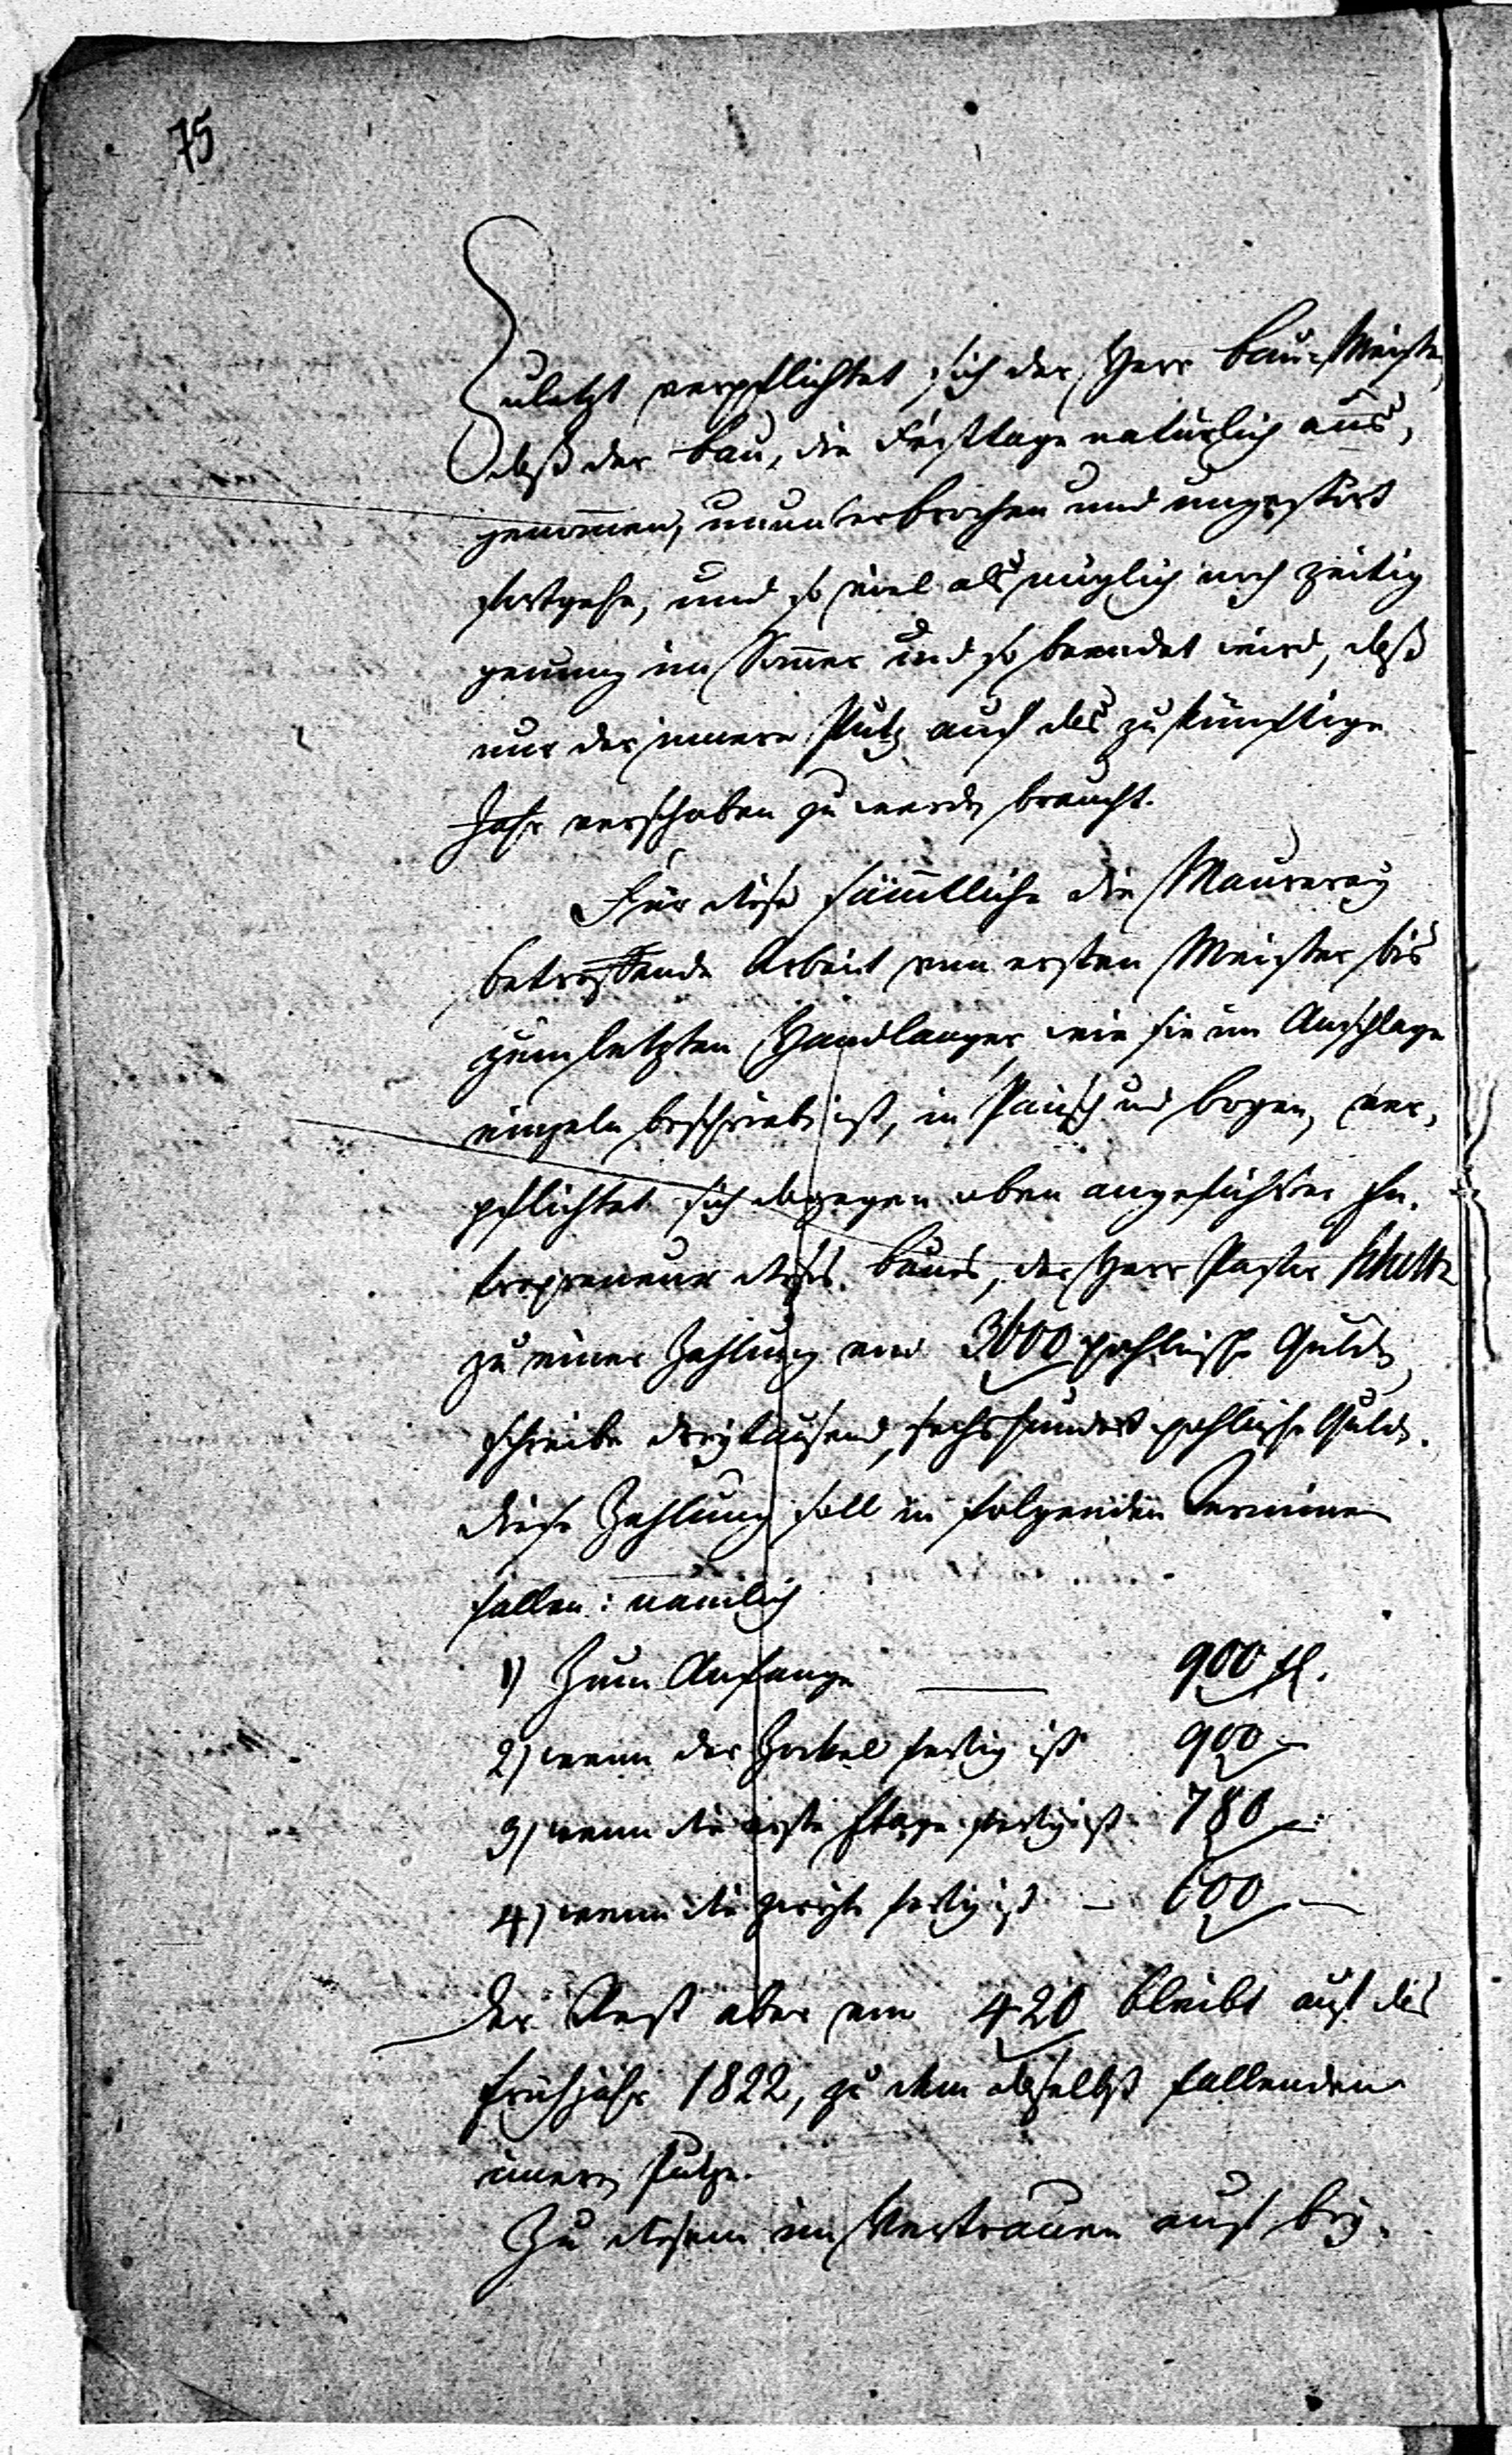 75
Zuletzt verpflichtet sich der Herr Bau-Meister,
daß der Bau, die Festtage natürlich aus,
genom̄en, ununterbrochen und ungestört
fortgehe, und so viel als möglich noch zeitig
genung im Som̄er und so beendet wird, daß
nur der innere Putz auf das zukünftige
Jahr verschoben zu werden braucht.
Für diese säm̄tliche die Maurerey
betreffende Arbeit vom ersten Meister bis
zum letzten Handlanger, wie sie im Anschlage
einzeln beschrieben ist, in Pausch und Bogen, ver,
pflichtet sich dagegen oben angeführter En,
trepreneur dieses Baues, der Herr Pastor
zu einer Zahlung von 3600 pohlnische Gulden,
schreibe dreytausend, sechshundert pohlnische Gulden.
Diese Zahlung soll in folgenden Terminen
fallen: nämlich
1) Zum Anfange — 900 fl.
2) wenn der Zockel fertig ist 900 –
3) wenn die erste Etage fertig ist 780 –
4) wenn die zweyte fertig ist – 600 –
Der Rest aber von 420 bleibt auf das
Frühjahr 1822, zu dem daselbst fallenden
innern Putze.
Zu diesem im Vertrauen auf bey,